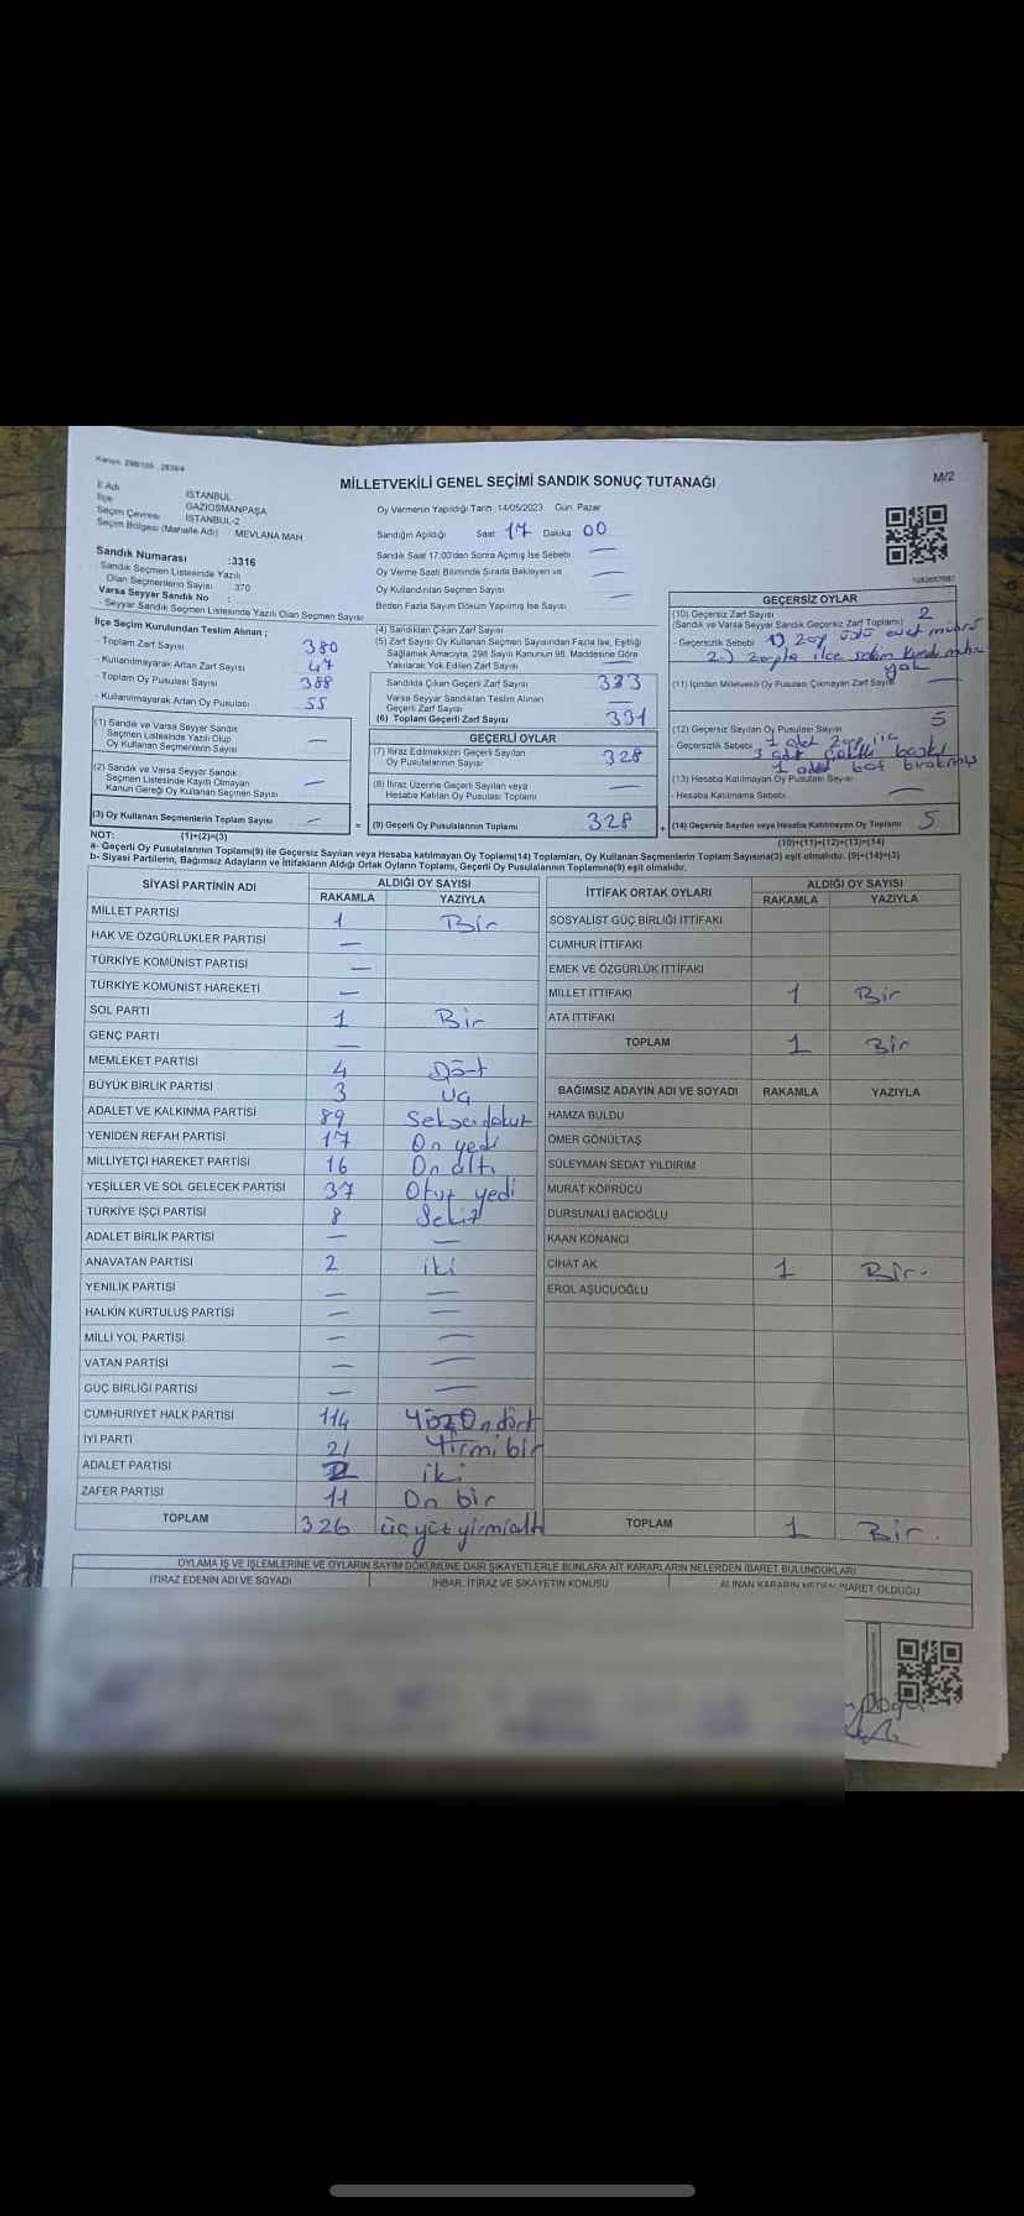 Kanun: 298/105 - 2839/4
MİLLETVEKİLİ GENEL SEÇİMİ SANDIK SONUÇ TUTANAĞI
M/2
İl Adı İSTANBUL
İlçe GAZİOSMANPAŞA
Seçim Çevresi İSTANBUL-2
Seçim Bölgesi (Mahalle Adı) : MEVLANA MAH
Sandık Numarası :3316
Sandık Seçmen Listesinde Yazılı
Olan Seçmenlerin Sayısı 370
Varsa Seyyar Sandık No :
- Seyyar Sandık Seçmen Listesinde Yazılı Olan Seçmen Sayısı
Oy Vermenin Yapıldığı Tarih 14/05/2023 Gün Pazar
Sandığın Açıldığı Saat 17 Dakika 00
Sandık Saat 17:00'den Sonra Açılmış İse Sebebi —
Oy Verme Saati Bitiminde Sırada Bekleyen ve —
Oy Kullandırılan Seçmen Sayısı
Birden Fazla Sayım Döküm Yapılmış İse Sayısı —
İlçe Seçim Kurulundan Teslim Alınan ;
- Toplam Zarf Sayısı 380
- Kullanılmayarak Artan Zarf Sayısı 47
- Toplam Oy Pusulası Sayısı 388
- Kullanılmayarak Artan Oy Pusulası 55
(1) Sandık ve Varsa Seyyar Sandık
Seçmen Listesinde Yazılı Olup
Oy Kullanan Seçmenlerin Sayısı —
(2) Sandık ve Varsa Seyyar Sandık
Seçmen Listesinde Kayıtlı Olmayan
Kanun Gereği Oy Kullanan Seçmen Sayısı —
(3) Oy Kullanan Seçmenlerin Toplam Sayısı —
(1)+(2)=(3)
(4) Sandıktan Çıkan Zarf Sayısı
(5) Zarf Sayısı Oy Kullanan Seçmen Sayısından Fazla İse, Eşitliği
Sağlamak Amacıyla, 298 Sayılı Kanunun 98. Maddesine Göre
Yakılarak Yok Edilen Zarf Sayısı —
Sandıkta Çıkan Geçerli Zarf Sayısı 333
Varsa Seyyar Sandıktan Teslim Alınan
Geçerli Zarf Sayısı —
(6) Toplam Geçerli Zarf Sayısı 331
GEÇERLİ OYLAR
(7) İtiraz Edilmeksizin Geçerli Sayılan
Oy Pusulalarının Sayısı 328
(8) İtiraz Üzerine Geçerli Sayılan veya
Hesaba Katılan Oy Pusulası Toplamı —
= (9) Geçerli Oy Pusulalarının Toplamı 328
GEÇERSİZ OYLAR
(10) Geçersiz Zarf Sayısı 2
(Sandık ve Varsa Seyyar Sandık Geçersiz Zarf Toplamı)
- Geçersizlik Sebebi 1) 2 oy üstü evet mührü
2.) 2 oyda ilçe seçim kurulu mührü
yok
(11) İçinden Milletvekili Oy Pusulası Çıkmayan Zarf Sayısı —
(12) Geçersiz Sayılan Oy Pusulası Sayısı 5
- Geçersizlik Sebebi 1 adet
3 adet baskı
1 adet boş bırakmış
(13) Hesaba Katılmayan Oy Pusulası Sayısı
- Hesaba Katılmama Sebebi —
+ (14) Geçersiz Sayılan veya Hesaba Katılmayan Oy Toplamı 5
(10)+(11)+(12)+(13)=(14)
NOT:
a- Geçerli Oy Pusulalarının Toplamı(9) ile Geçersiz Sayılan veya Hesaba katılmayan Oy Toplamı(14) Toplamları, Oy Kullanan Seçmenlerin Toplam Sayısına(3) eşit olmalıdır. (9)+(14)=(3)
b- Siyasi Partilerin, Bağımsız Adayların ve İttifakların Aldığı Ortak Oyların Toplamı, Geçerli Oy Pusulalarının Toplamına(9) eşit olmalıdır.
SİYASİ PARTİNİN ADI ALDIĞI OY SAYISI
RAKAMLA YAZIYLA
MİLLET PARTİSİ 1 Bir
HAK VE ÖZGÜRLÜKLER PARTİSİ —
TÜRKİYE KOMÜNİST PARTİSİ —
TÜRKİYE KOMÜNİST HAREKETİ —
SOL PARTİ 1 Bir
GENÇ PARTİ —
MEMLEKET PARTİSİ 4 Dört
BÜYÜK BİRLİK PARTİSİ 3 Üç
ADALET VE KALKINMA PARTİSİ 89 Seksendokuz
YENİDEN REFAH PARTİSİ 17 On yedi
MİLLİYETÇİ HAREKET PARTİSİ 16 On altı
YEŞİLLER VE SOL GELECEK PARTİSİ 37 Otuz yedi
TÜRKİYE İŞÇİ PARTİSİ 8 Sekiz
ADALET BİRLİK PARTİSİ — —
ANAVATAN PARTİSİ 2 iki
YENİLİK PARTİSİ — —
HALKIN KURTULUŞ PARTİSİ — —
MİLLİ YOL PARTİSİ — —
VATAN PARTİSİ — —
GÜÇ BİRLİĞİ PARTİSİ — —
CUMHURİYET HALK PARTİSİ 114 Yüz On dört
İYİ PARTİ 21 Yirmi bir
ADALET PARTİSİ 2 iki
ZAFER PARTİSİ 11 On bir
TOPLAM 326 üçyüzyirmialtı
İTTİFAK ORTAK OYLARI ALDIĞI OY SAYISI
RAKAMLA YAZIYLA
SOSYALİST GÜÇ BİRLİĞİ İTTİFAKI
CUMHUR İTTİFAKI
EMEK VE ÖZGÜRLÜK İTTİFAKI
MİLLET İTTİFAKI 1 Bir
ATA İTTİFAKI
TOPLAM 1 Bir
BAĞIMSIZ ADAYIN ADI VE SOYADI RAKAMLA YAZIYLA
HAMZA BULDU
ÖMER GÖNÜLTAŞ
SÜLEYMAN SEDAT YILDIRIM
MURAT KÖPRÜCÜ
DURSUNALİ BACIOĞLU
KAAN KONANCI
CİHAT AK 1 Bir.
EROL AŞUCUOĞLU
TOPLAM 1 Bir.
OYLAMA İŞ VE İŞLEMLERİNE VE OYLARIN SAYIM DÖKÜMÜNE DAİR ŞİKAYETLERLE BUNLARA AİT KARARLARIN NELERDEN İBARET BULUNDUKLARI
İTİRAZ EDENİN ADI VE SOYADI İHBAR, İTİRAZ VE ŞİKAYETİN KONUSU ALINAN KARARIN NEDEN İBARET OLDUĞU